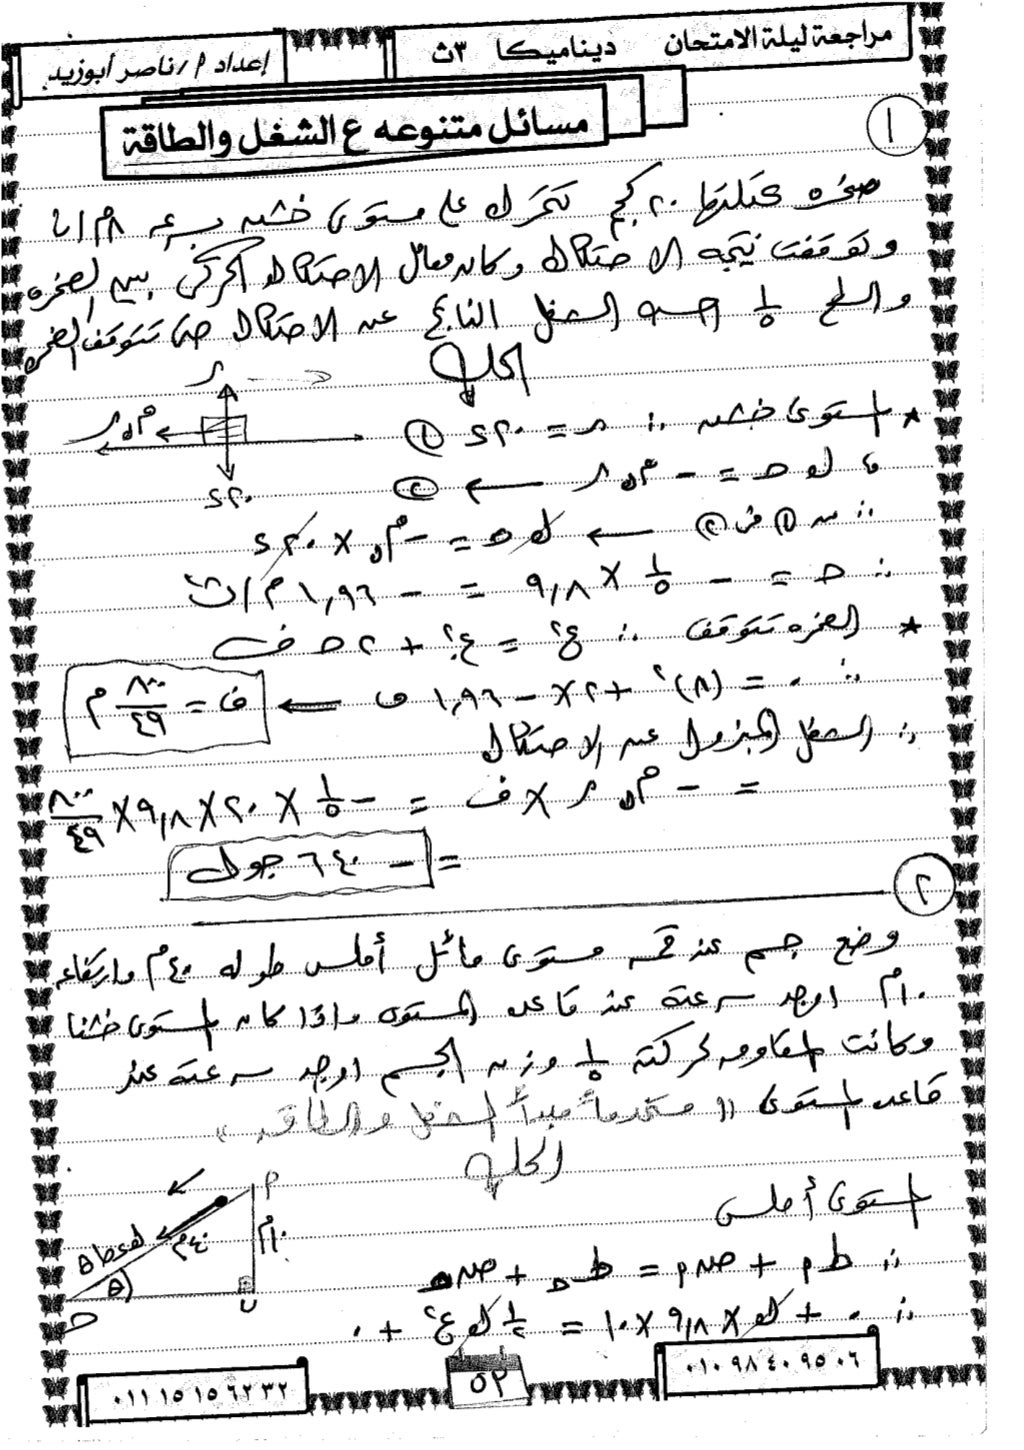 مراجعة ليلة الامتحان ديناميكا ٣ث
إعداد م/ناصر أبوزيد
مسائل متنوعه ع الشغل والطاقة
١
صخره كتلتها ٢٠ كجم تتحرك على مستوى خشن بسرعه ٨م/ث
وتوقفت نتيجه الاحتكاك وكان معامل الاحتكاك الحركى بين الصخره
والسطح ١/٥ احسب الشغل الناتج عن الاحتكاك حتى تتوقف الصخره
الحل
★ المستوى خشن ∴ ر = ٢٠ء ①
، ك حـ = - مك ر ← ②
∴ من ① فى ② ← ك حـ = - مك × ٢٠ء
∴ حـ = - ١/٥ × ٩,٨ = - ١,٩٦ م/ث²
★ الصخره تتوقف ∴ ع² = ع.² + ٢ حـ ف
∴ ٠ = (٨)² + ٢ × - ١,٩٦ ف ← ف = ٨٠٠/٤٩ م
∴ الشغل المبذول عن الاحتكاك
= - مك ر × ف = - ١/٥ × ٢٠ × ٩,٨ × ٨٠٠/٤٩
= - ٦٤٠ جول
ر
مك ر
٢٠ء
٢
وضع جسم عند قمة مستوى مائل أملس طوله ٤٠م وارتفاعه
١٠م اوجد سرعته عند قاعدة المستوى واذا كان المستوى خشنا
وكانت المقاومه لحركته ١/٥ وزن الجسم اوجد سرعته عند
قاعدة المستوى (( مستخدماً مبدأ الشغل والطاقه ))
الحل
المستوى أملس
∴ ط م + ض م = ط حـ + ض حـ
∴ ٠ + ك × ٩,٨ × ١٠ = ١/٢ ك ع² + ٠
م
٤٠م
١٠م
θ
ب
حـ
٠١١١٥١٥٦٢٣٢
٥٢
٠١٠٩٨٤٠٩٥٠٦